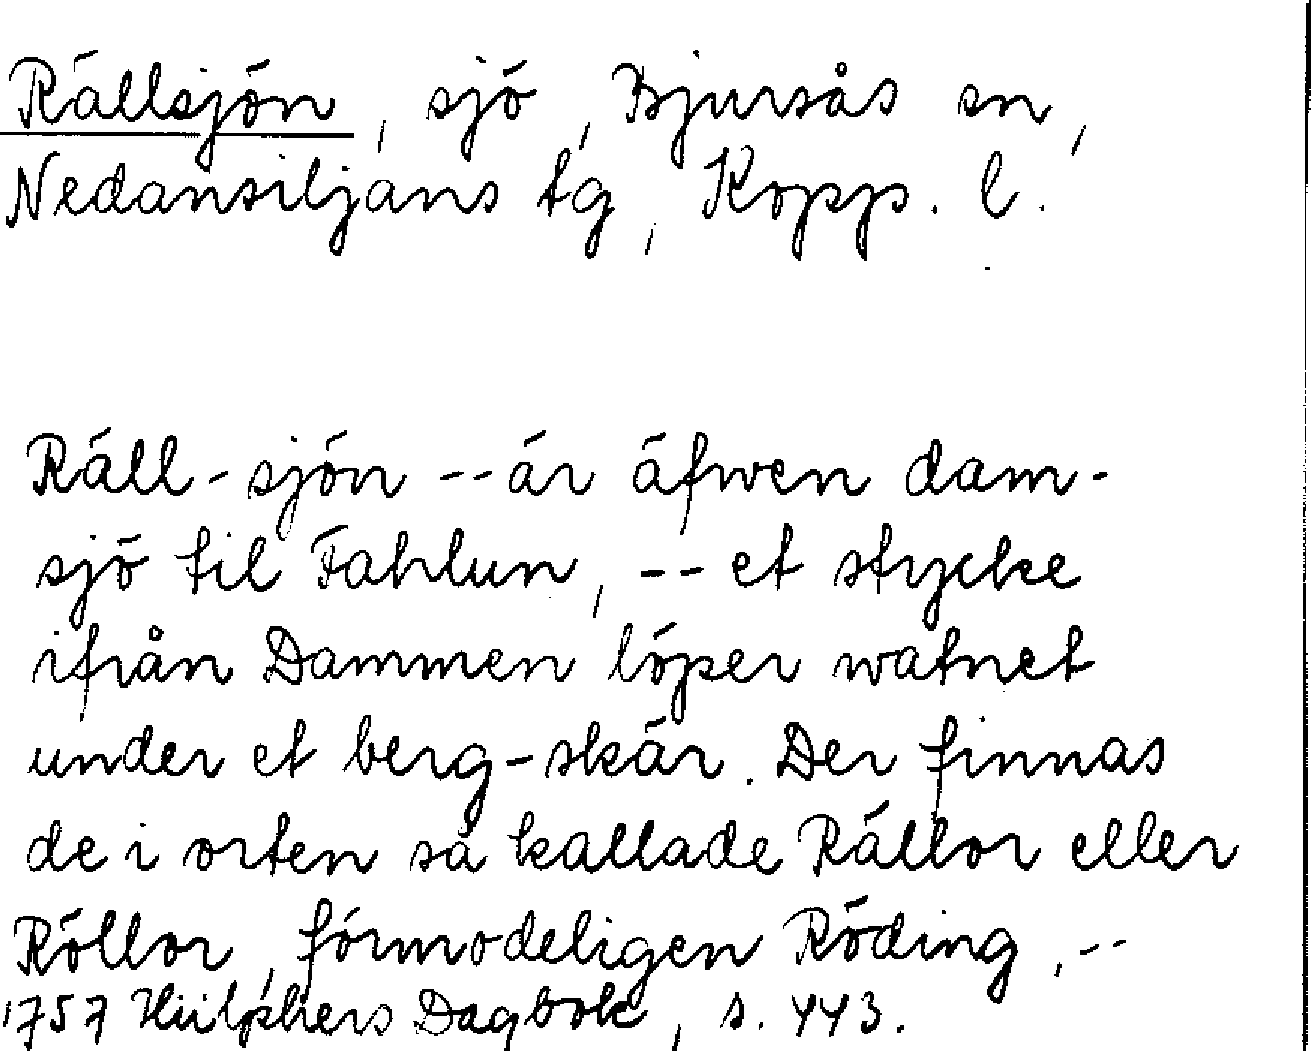 Rällsjön, sjö, Bjursås sn,
Nedansiljans tg, Kopp. l.
Räll-sjön -- är äfwen dam-
sjö til Fahlun, -- et stycke
ifrån Dammen löper watnet
under et berg-skär. Der finnas
de i orten så kallade Rällor eller
Röllor, förmodeligen Röding, --
1757 Hülphers Dagbok, s. 443.